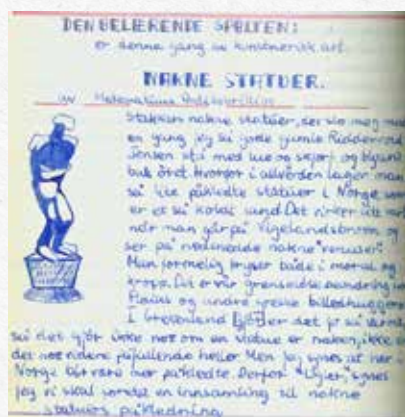 DEN BELÆRENDE SPALTEN:
er denne gang av kunstnerisk art.
NAKNE STATUER.
av
Stakkars nakne statuer, det slo meg
en gang jeg så gode gamle Ridderved
Jensen stå med lue og skjerf og
hvorfor i allverden lager man
så lite påkledte statuer i Norge som
er et så koldt land. Det
når man går på Vigelandsbroen og
ser på nakne "venuser".
Man formelig fryser både i moral og
kropp. Det er vår grenseløse beundring
og andre greske billedhuggere
I Grekenland er det jo så varmt
så det gjør ikke noe om en statue er naken, ikke er
det noe videre heller. Men jeg synes at her i
Norge bør være mer påkledte. Derfor synes
jeg vi skal en innsamling til nakne
statuers påkledning